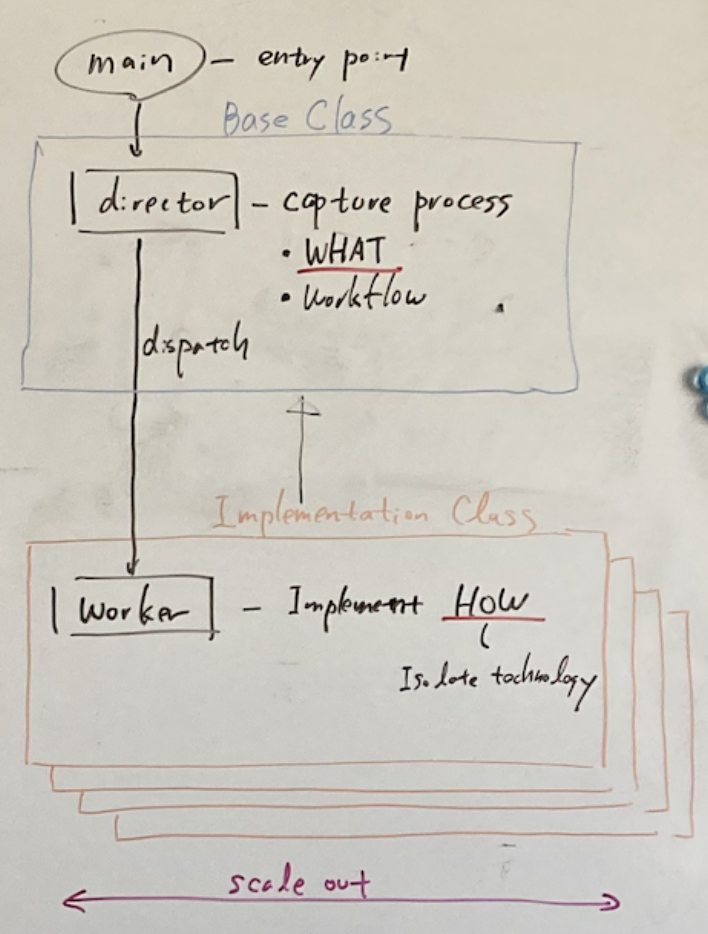 main – entry point
Base Class
director – capture process
• WHAT
• Workflow
dispatch
Implementation Class
Worker – Implement HOW
Isolate technology
scale out